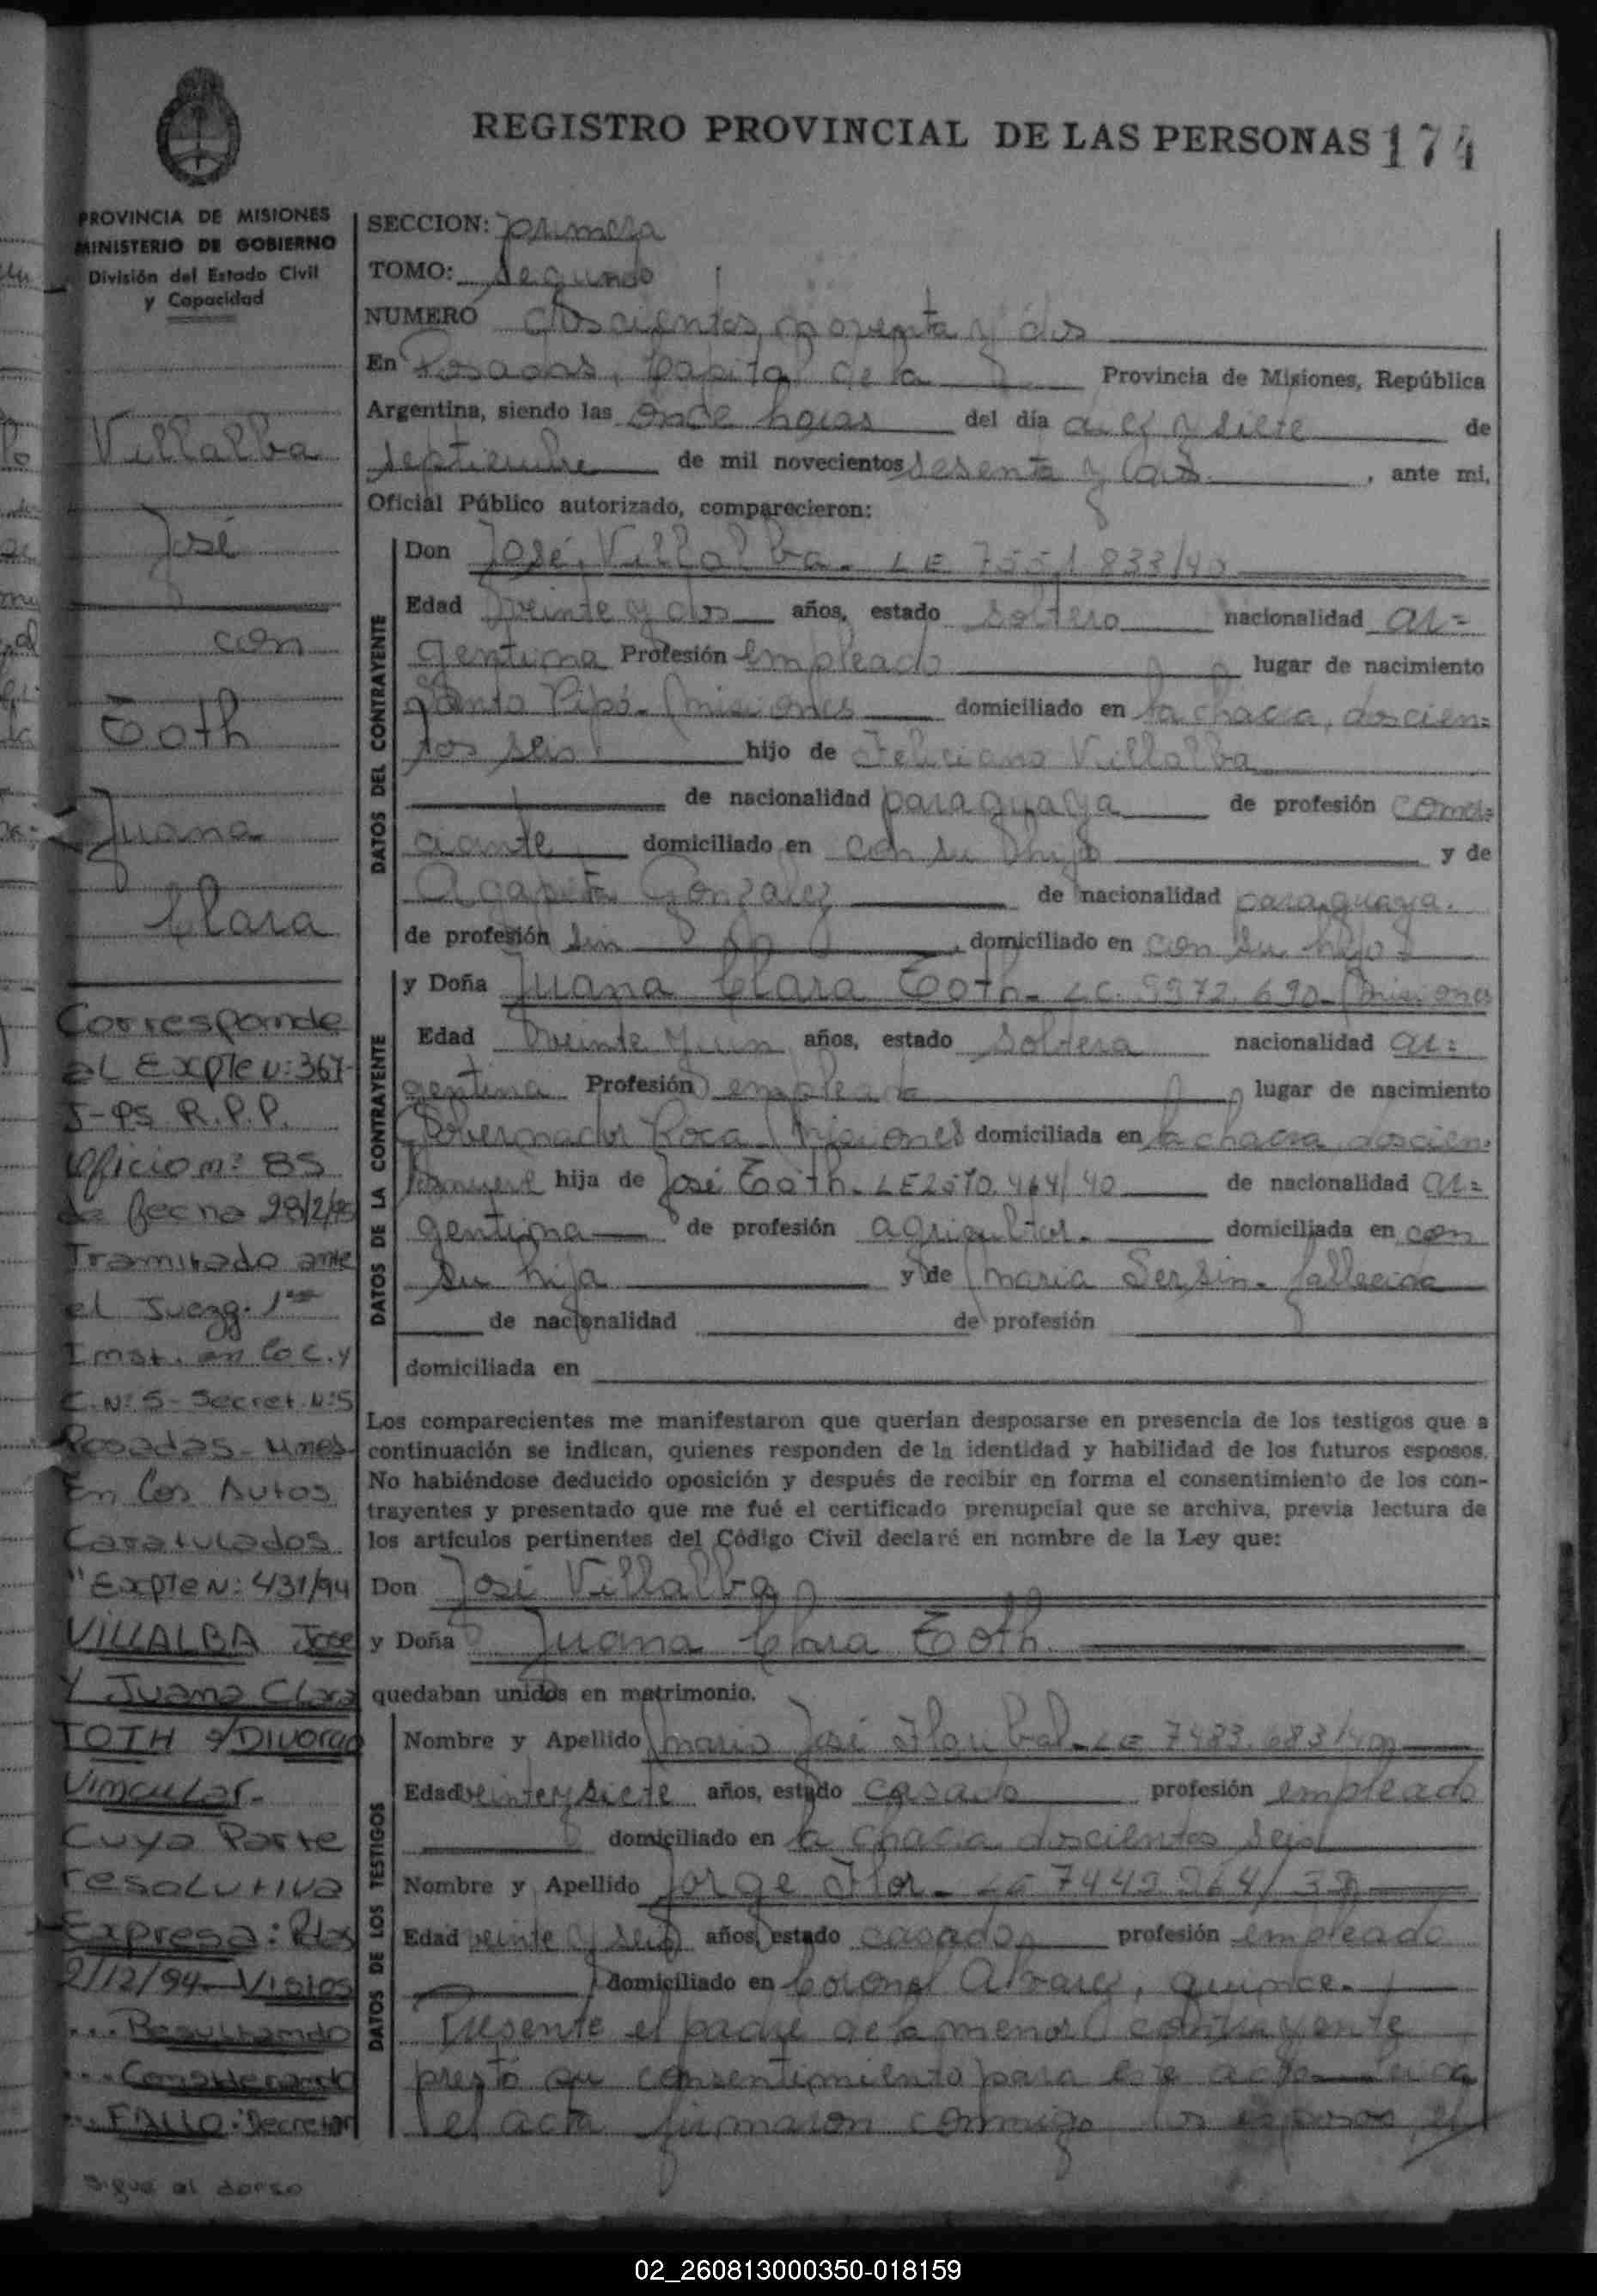 REGISTRO PROVINCIAL DE LAS PERSONAS 174
PROVINCIA DE MISIONES
MINISTERIO DE GOBIERNO
División del Estado Civil
y Capacidad
Villalba
José
con
Toth
Juana
Clara
Corresponde
al Expte N: 367-
J-95 R.P.P.
Oficio nº 85
de fecha 28/2/95
Tramitado ante
el Juzg. 1ra
Inst. en lo C. y
C. Nº 5 - Secret. Nº 5
Posadas - Mnes
En los Autos
Caratulados
"Expte N: 431/94
VILLALBA José
Y Juana Clara
TOTH s/Divorcio
Vincular.
Cuya Parte
resolutiva
Expresa: Pdas
2/12/94 Vistos
... Resultando
... Considerando
... FALLO: Decretar
Sigue al dorso
SECCION: primera
TOMO: segundo
NUMERO doscientos noventa y dos
En Posadas, Capital de la Provincia de Misiones, República
Argentina, siendo las once horas del día diez y siete de
septiembre de mil novecientos sesenta y , ante mi,
Oficial Público autorizado, comparecieron:
DATOS DEL CONTRAYENTE
Don José Villalba. LE 7551833/40
Edad veinte y dos años, estado soltero nacionalidad ar=
gentina Profesión empleado lugar de nacimiento
Santo Pipó. Misiones domiciliado en la chacra, doscien=
tos seis hijo de Feliciano Villalba
de nacionalidad paraguaya de profesión comer=
ciante domiciliado en con su hijo y de
Agapita Gonzalez de nacionalidad paraguaya.
de profesión sin , domiciliado en con su hijo
DATOS DE LA CONTRAYENTE
y Doña Juana Clara Toth. LC. 9972.690. Misiones
Edad veinte y un años, estado soltera nacionalidad ar=
gentina Profesión empleada lugar de nacimiento
Gobernador Roca Misiones domiciliada en la chacra doscien=
hija de José Toth. LE 2570.464/40 de nacionalidad ar=
gentina de profesión agricultor. domiciliada en con
su hija y de Maria Sersin. fallecida
de nacionalidad de profesión
domiciliada en
Los comparecientes me manifestaron que querían desposarse en presencia de los testigos que a
continuación se indican, quienes responden de la identidad y habilidad de los futuros esposos.
No habiéndose deducido oposición y después de recibir en forma el consentimiento de los con-
trayentes y presentado que me fué el certificado prenupcial que se archiva, previa lectura de
los artículos pertinentes del Código Civil declaré en nombre de la Ley que:
Don José Villalba
y Doña Juana Clara Toth.
quedaban unidos en matrimonio.
DATOS DE LOS TESTIGOS
Nombre y Apellido Mario José LE 7483.683/
Edad veinte y siete años, estado casado profesión empleado
domiciliado en la chacra doscientos seis
Nombre y Apellido Jorge Flor. LE 7443264/38
Edad veinte y seis años, estado casado profesión empleado
domiciliado en Coronel Alvarez, quince.
Presente el padre de la menor contrayente
prestó su consentimiento para este acto. Leida
el acta firmaron conmigo los esposos, el
02_260813000350-018159